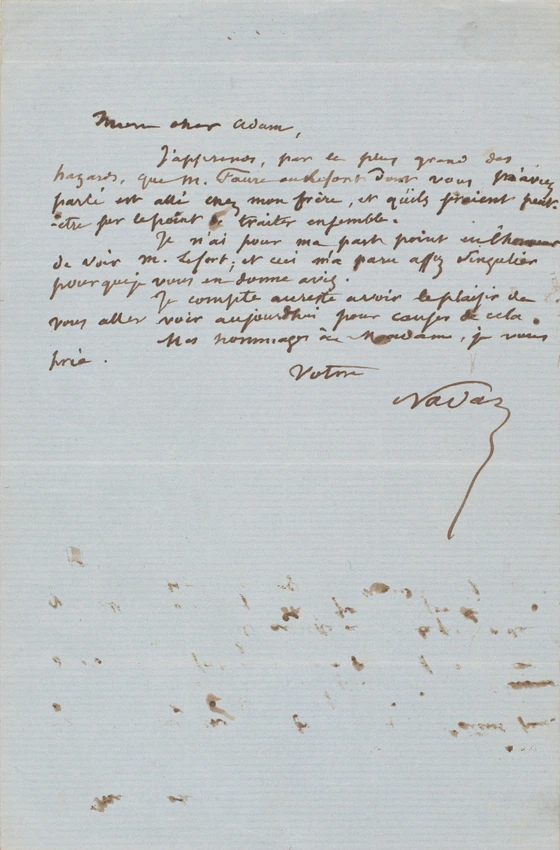 Mon cher Adam,
J'apprends, par le plus grand des
hazards, que M. Faure ou Lefort dont vous m'avez
parlé est allé chez mon frère, et qu'ils seroient peut-
-être sur le point de traiter ensemble.
Je n'ai pour ma part point eu l'honneur
de voir M. Lefort; et ceci m'a paru assez singulier
pour que je vous en donne avis.
Je compte au reste avoir le plaisir de
vous aller voir aujourd'hui pour causer de cela.
Mes hommages à Madame, je vous
prie.
Votre
Nadar